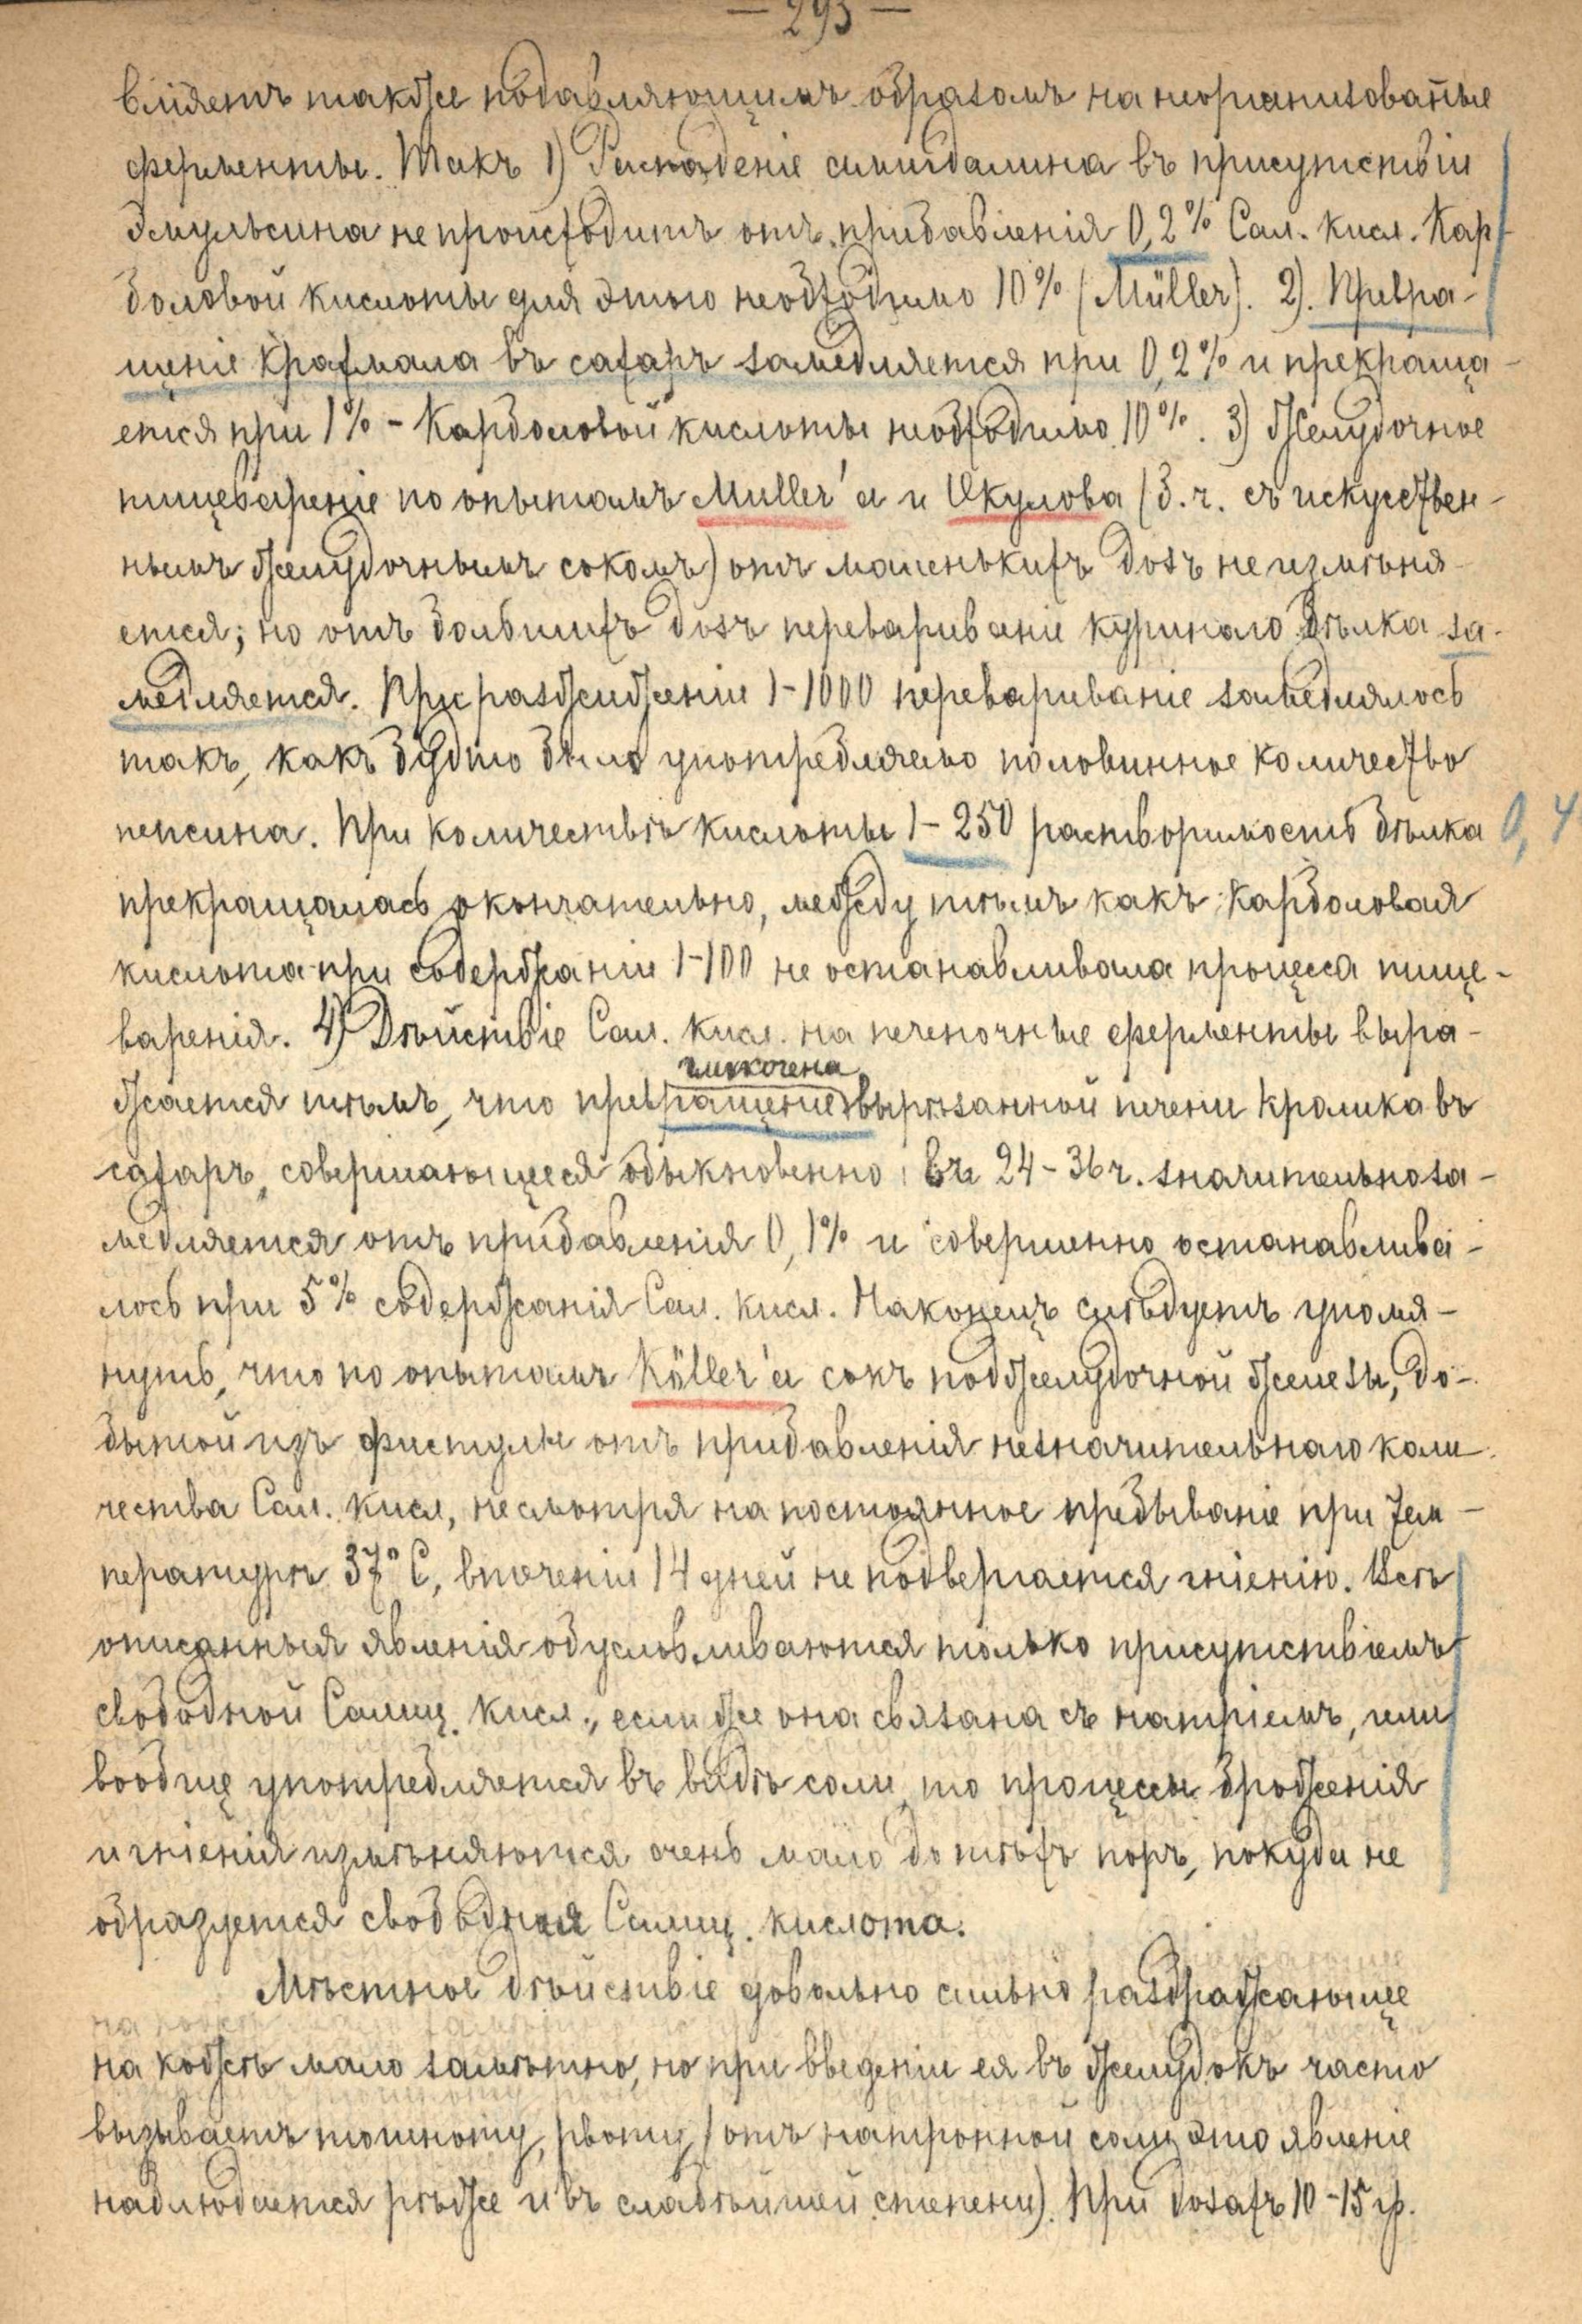 — 293 —
вліяетъ также подавляющимъ образомъ на неорганизованные
ферменты. Такъ 1) Распаденіе амигдалина въ присутствіи
эмульсина не происходитъ отъ прибавленія 0,2% Сал. кисл. Кар-
боловой кислоты для этого необходимо 10% (Müller). 2). Превра-
щеніе крахмала въ сахаръ замедляется при 0,2% и прекраща-
ется при 1% - Карболовой кислоты необходимо 10%. 3) Желудочное
пищевареніе по опытамъ Muller'а и Окулова (б. ч. съ искусствен-
нымъ желудочнымъ сокомъ) отъ маленькихъ дозъ не измѣня-
ется; но отъ большихъ дозъ перевариваніе куринаго бѣлка за-
медляется. При разжиженіи 1-1000 перевариваніе замедлялось
такъ, какъ будто было употребляемо половинное количество
пепсина. При количествѣ кислоты 1-250 растворимость бѣлка 0,4
прекращалась окончательно, между тѣмъ какъ карболовая
кислота при содержаніи 1-100 не останавливала процесса пище-
варенія. 4) Дѣйствіе Сал. кисл. на печеночные ферменты выра-
гликогена
жается тѣмъ, что превращеніе вырѣзанной печени кролика въ
сахаръ, совершающееся обыкновенно въ 24-36 ч. значительно за-
медляется отъ прибавленія 0,1% и совершенно останавлива-
лось при 5% содержанія Сал. кисл. Наконецъ слѣдуетъ упомя-
нуть, что по опытамъ Köller'а сокъ поджелудочной железы, до-
бытой изъ фистулы отъ прибавленія незначительнаго коли-
чества Сал. кисл, несмотря на постоянное пребываніе при тем-
пературѣ 37° С, втеченіи 14 дней не подвергается гніенію. Всѣ
описанныя явленія обусловливаются только присутствіемъ
свободной Салиц. кисл., если же она связана съ натріемъ, или
вообще употребляется въ видѣ соли, то процессы броженія
и гніенія измѣняются очень мало до тѣхъ поръ, покуда не
образуется свободная Салиц. кислота.
Мѣстное дѣйствіе довольно сильно раздражающее
на кожѣ мало замѣтно, но при введеніи ея въ желудокъ часто
вызываетъ тошноту, рвоту, (отъ натронной соли это явленіе
наблюдается рѣже и въ слабѣйшей степени). При дозахъ 10-15 гр.